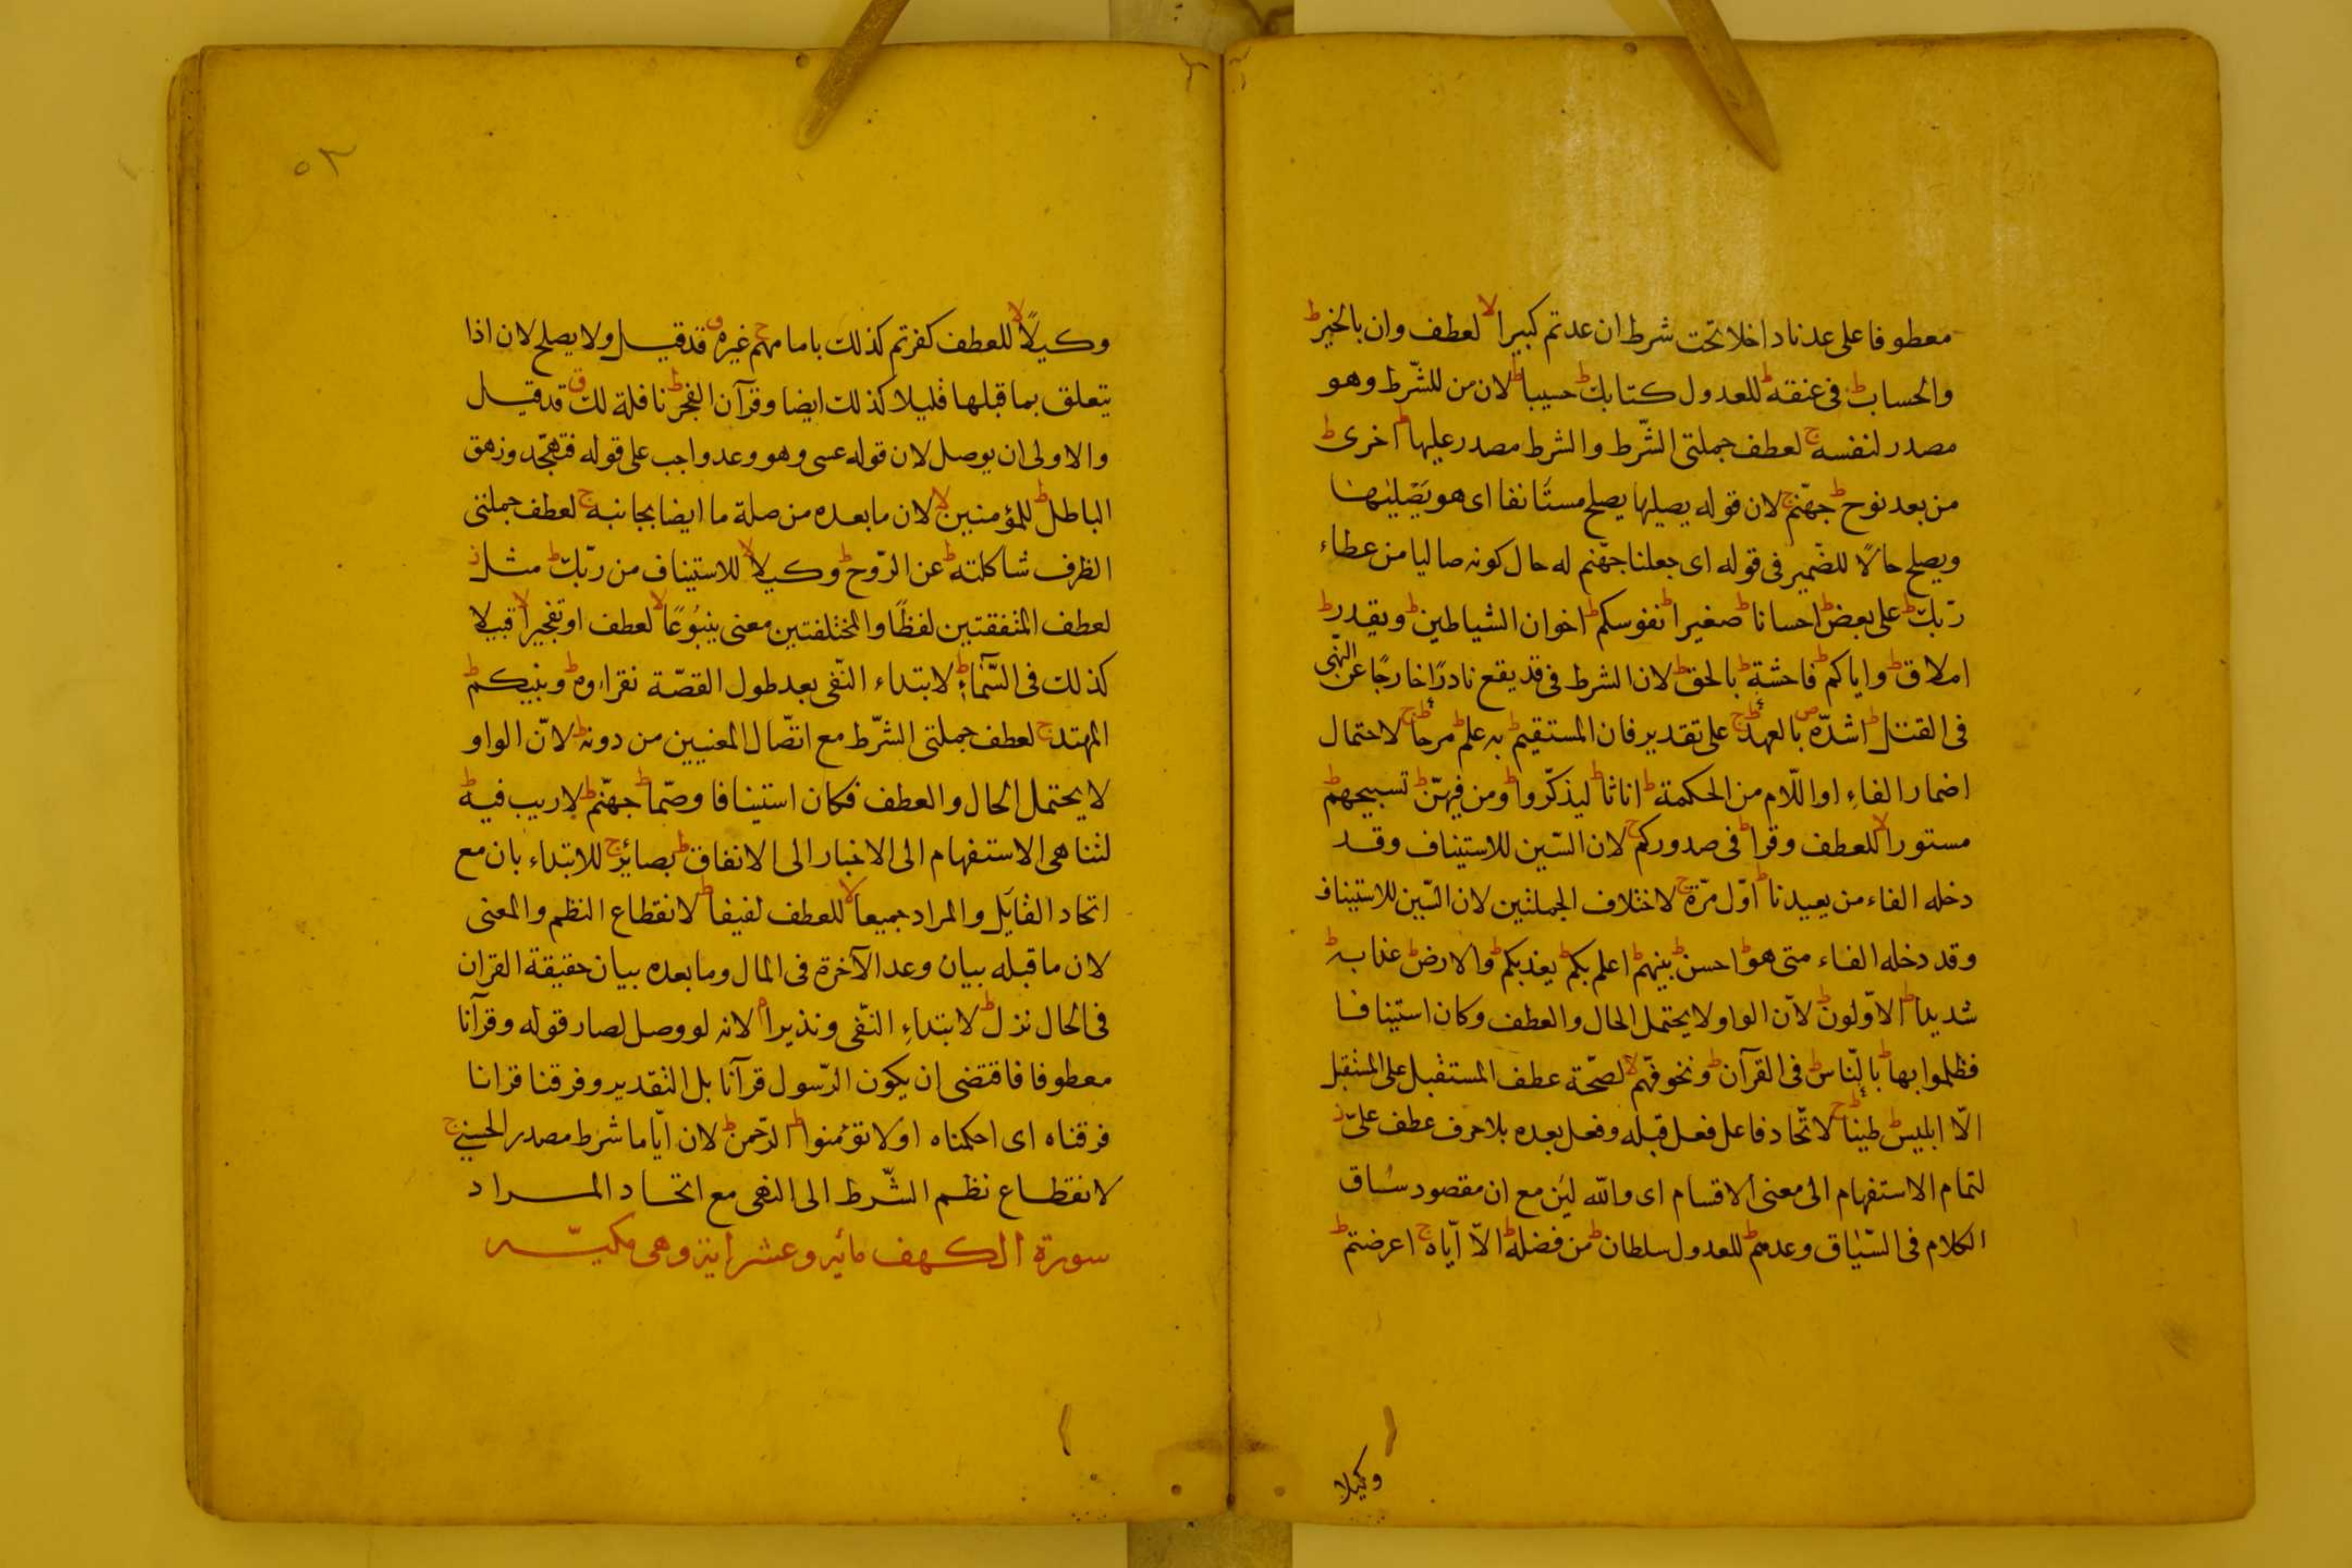 معطوفا على عدنا داخلا تحت شرط ان عدتم كبيرا لا لعطف وان بالخير ط
والحساب ط فى عنقه ط للعدول كتابك ط حسيبا ط لان من للشّرط وهو
مصدر لنفسه ج لعطف جملتى الشّرط والشرط مصدر عليها ط اخرى ط
من بعد نوح ط جهنّم ج لان قوله يصليها يصلح مستأنفا اى هو يصليها
ويصلح حالًا للضّمير فى قوله اى جعلنا جهّنم له حال كونه صاليا من عطاء
ربّك ط على بعض ط احسانا ط صغيرا ط نفوسكم ط اخوان الشياطين ط ويقدر ط
املاق ط واياكم ط فاحشة ط بالحق ط لان الشرط فى قد يقع نادرًا خارجًا عن النّهى
فى القتل ط اشدّه ص بالعهد ط ج على تقدير فان المستقيم ط به علم ط مرحا ط ج لاحتمال
اضمار الفاءِ او اللّام من الحكمة ط اناثا ط ليذكّروا ط ومن فيهنّ ط تسبيحهم ط
مستورا لا للعطف وقرا ط فى صدوركم ج لان السّين للاستيناف وقد
دخله الفاء من يعيدنا ط اوّل مرّة ج لاختلاف الجملتين لان السّين للاستيناف
وقد دخله الفاء متى هو ط احسن ط بينهم ط اعلم بكم ط يعذبكم ط والارض ط عذابه ط
شديدا ط الاوّلون ط لانّ الواو لا يحتمل الحال والعطف وكان استينافا
فظلموا بها ط بالنّاس ط فى القرآن ط ونخوفهّم لا لصحّة عطف المستقبل على المستقبل
الّا ابليس ط طينا ط ج لاتّحاد فاعل فعل قبله وفعل بعده بلا حرف عطف علىّ ز
لتمام الاستفهام الى معنى الاقسام اى والله لين مع ان مقصود سياق
الكلام فى السّياق وعدهم ط للعدول سلطان ط من فضله ط الّا ايّاه ج اعرضتم ط
وكيلا
٥٢
وكيلًا لا للعطف كفرتم كذلك باما مهم ج غيره ق قد قيل ولا يصلح لان اذا
يتعلق بما قبلها قليلا كذلك ايضا وقرآن الفجر ط نافلة لك ق قد قيل
والاولى ان يوصل لان قوله عسى وهو وعد واجب على قوله فتهجّد وزهق
الباطل ط للمؤمنين لا لان ما بعده من صلة ما ايضا بجانبه ج لعطف جملتى
الظرف شاكلته ط عن الرّوح ط وكيلا لا للاستيناف من ربّك ط مثل ز
لعطف المتفقتين لفظًا والمختلفتين معنى ينبُوعًا لا لعطف او تفجيرا لا قبيلا
كذلك فى السّمآء ط لابتداء النّفى بعد طول القصّة نقراوه ط وبينكم ط
المهتد ج لعطف جملتى الشّرط مع اتّصال المعنيين من دونه ط لانّ الواو
لا يحتمل الحال والعطف فكان استينافا وصمّا ط جهنّم ط لا ريب فيه ط
لتناهى الاستفهام الى الاخبار الى الانفاق ط بصائر ج للابتداء بان مع
اتحاد القايل والمراد جميعا لا للعطف لفيفا ط لانقطاع النظم والمعنى
لان ما قبله بيان وعد الآخرة فى المال وما بعده بيان حقيقة القران
فى الحال نزل ط لابتداءِ النّفى ونذيرا م لانه لو وصل لصار قوله وقرآنا
معطوفا فاقتضى ان يكون الرّسول قرآنا بل التقدير وفرقنا قرانا
فرقناه اى احكمناه او لا تؤمنوا ط الرّحمن ط لان ايّاما شرط مصدر الحسنى ج
لانقطاع نظم الشّرط الى النهى مع اتحاد المراد
سورة الكهف مأيه وعشر ايه وهى مكيّه